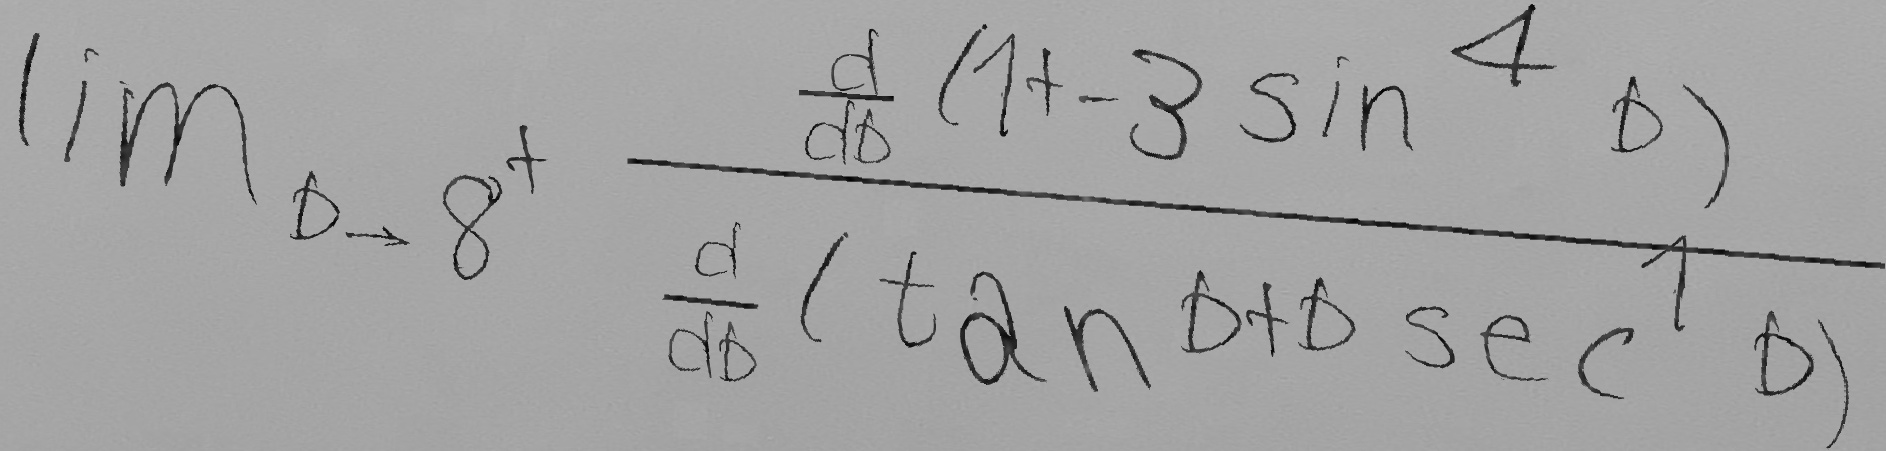 \lim_{D \to 8^+} \frac{\frac{d}{dD}(1+-3\sin^4 D)}{\frac{d}{dD}(\tan D+D\sec^1 D)}